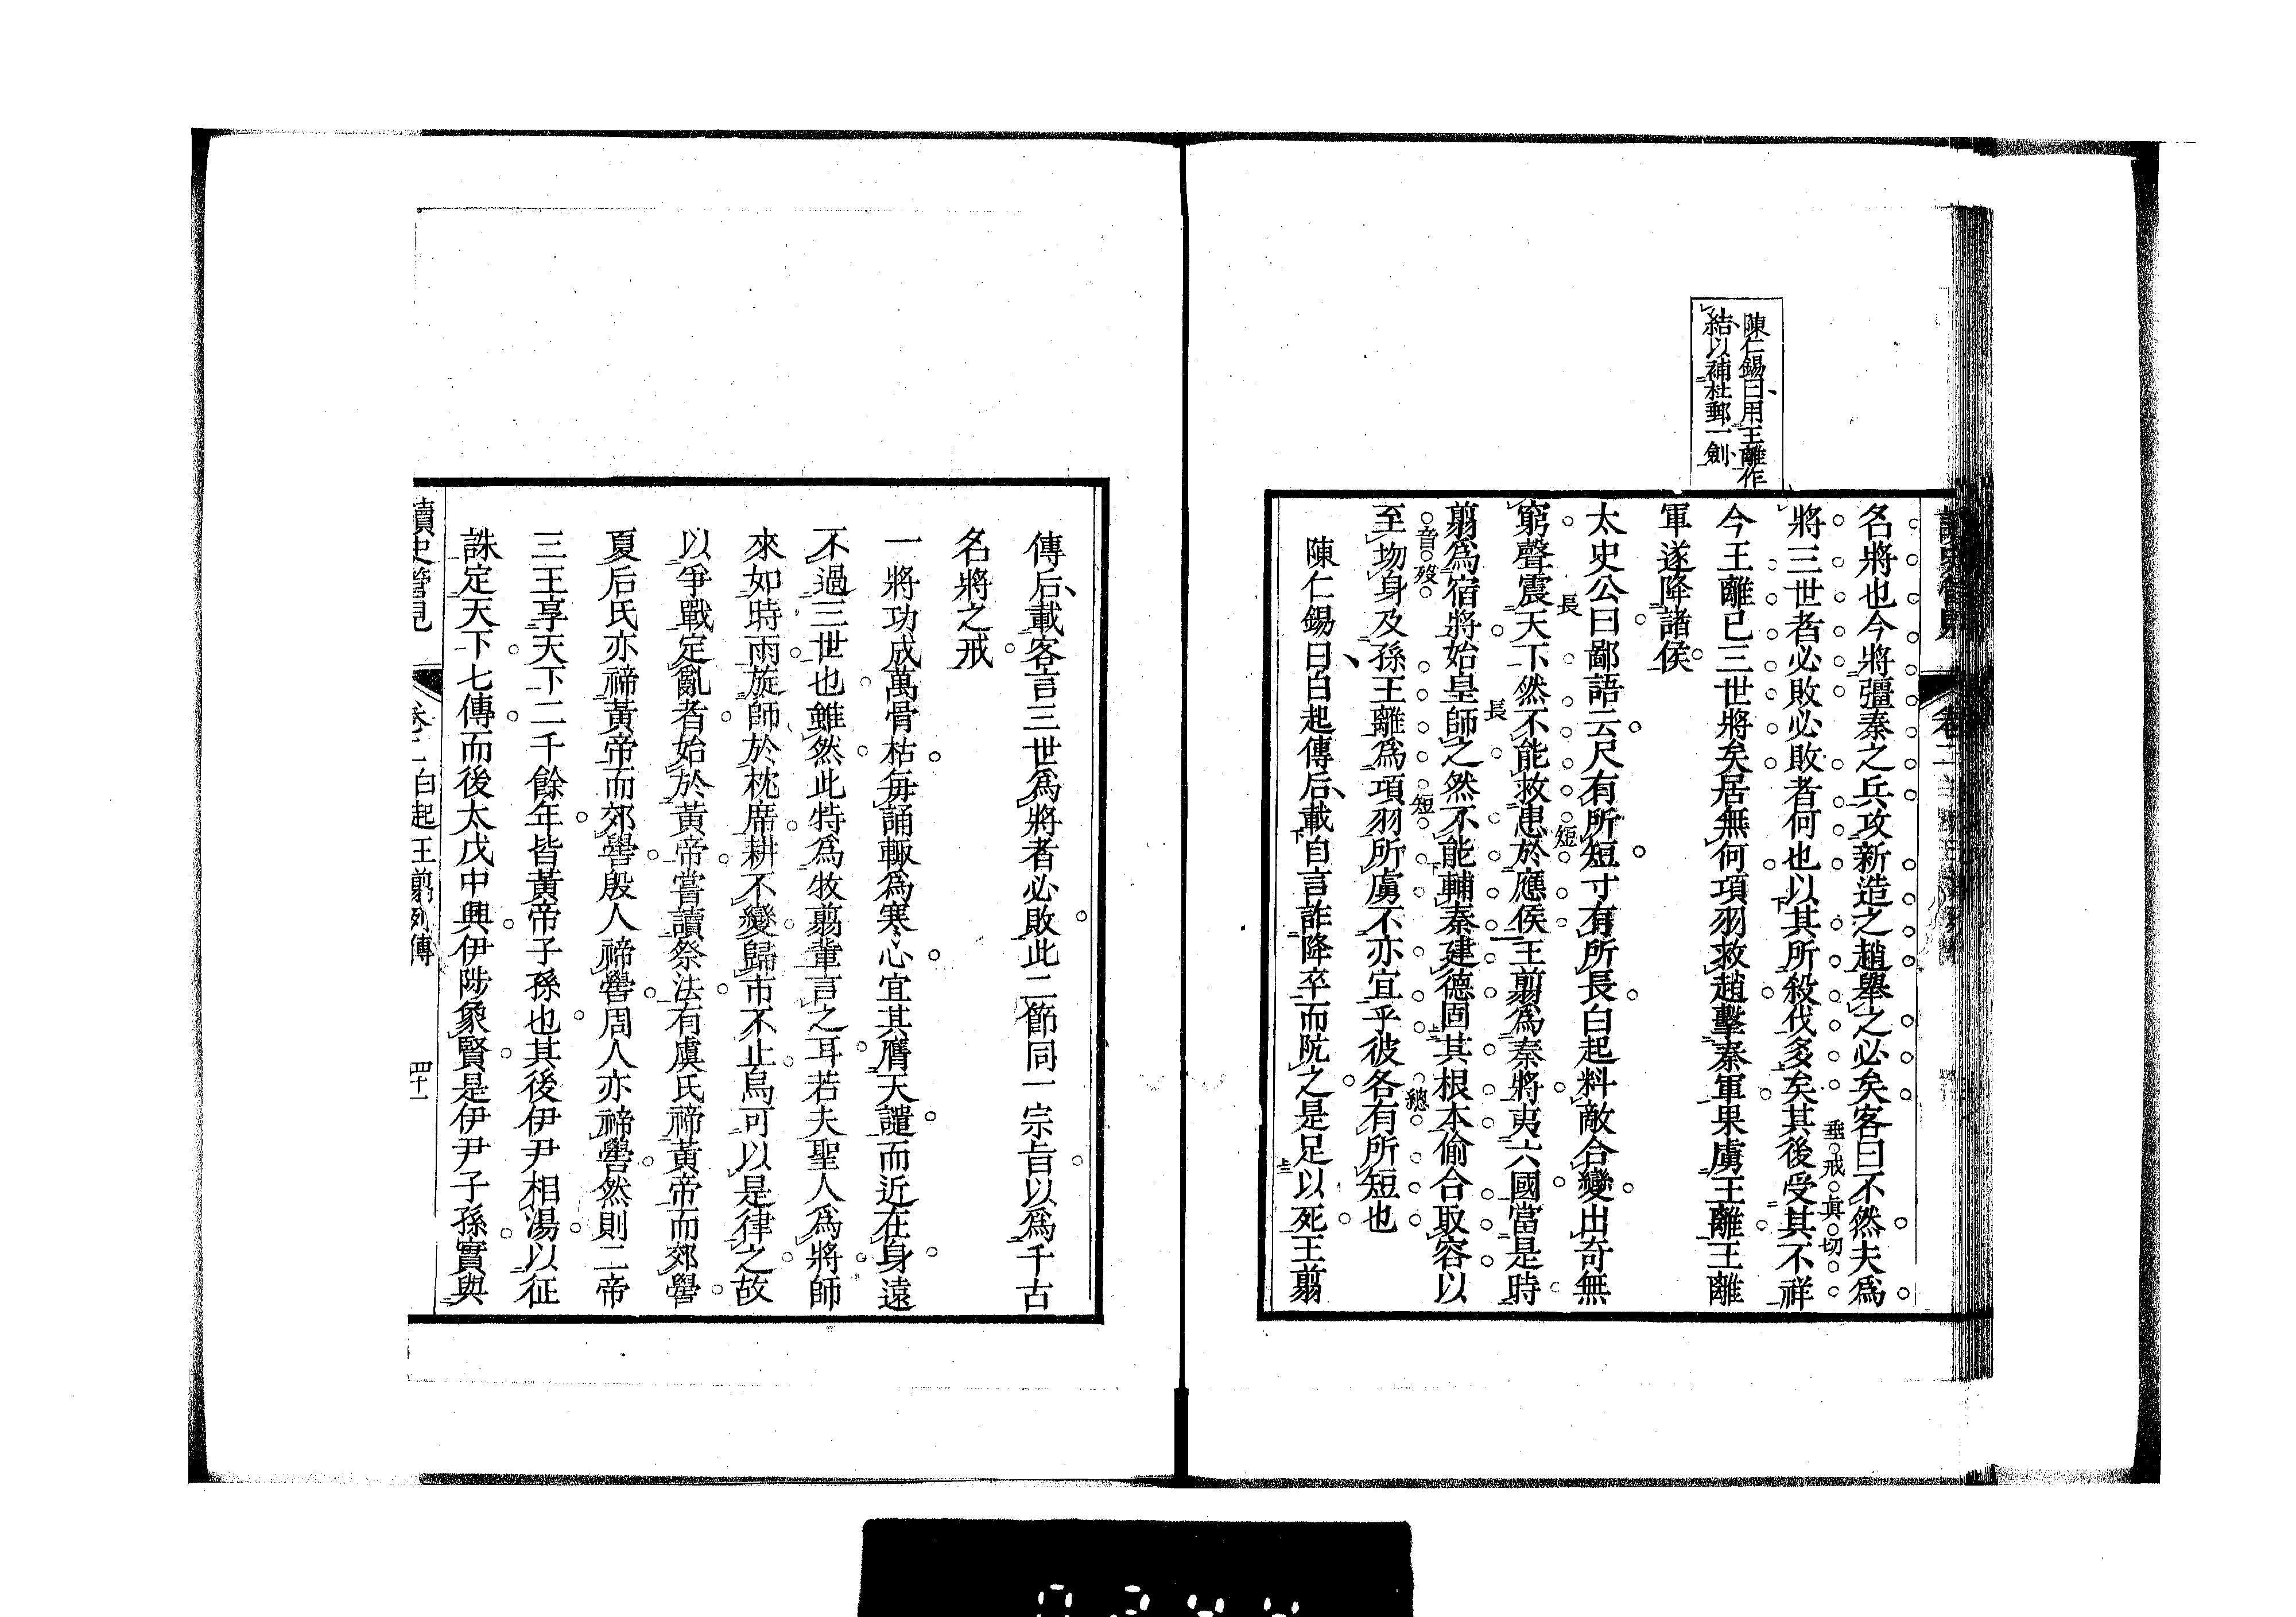 陳仁錫曰用王離作
結以補杜郵一劍
名將也今將彊秦之兵攻新造之趙舉之必矣客曰不然夫爲
將三世者必敗必敗者何也以其所殺伐多矣其後受其不祥
今王離已三世將矣居無何項羽救趙擊秦軍果虜王離王離
軍遂降諸侯
太史公曰鄙語云尺有所短寸有所長白起料敵合變出奇無
窮聲震天下然不能救患於應侯王翦爲秦將夷六國當是時
翦爲宿將始皇師之然不能輔秦建德固其根本偷合取容以
至㘬身及孫王離爲項羽所虜不亦宜乎彼各有所短也
陳仁錫曰白起傳后載自言詐降卒而阬之是足以死王翦
垂戒眞切
長
短
長
音歿
短
總
傳后載客言三世爲將者必敗此二節同一宗旨以爲千古
名將之戒
一將功成萬骨枯每誦輙爲寒心宜其膺天譴而近在身遠
不過三世也雖然此特爲牧翦輩言之耳若夫聖人爲將師
來如時雨旋師於枕席耕不變歸市不止烏可以是律之故
以爭戰定亂者始於黃帝嘗讀祭法有虞氏禘黃帝而郊嚳
夏后氏亦禘黃帝而郊嚳殷人禘嚳周人亦禘嚳然則二帝
三王享天下二千餘年皆黃帝子孫也其後伊尹相湯以征
誅定天下七傳而後太戊中興伊陟象賢是伊尹子孫實與
讀史管見 卷二 白起王翦列傳 四十一